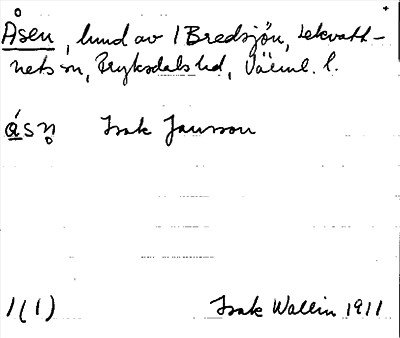 Åsen, lund av 1 Bredsjön, Lekvatt-
nets sn, Fryksdals hd, Värml. l.
ásn̥ Isak Jansson
1(1) Isak Wallin 1911